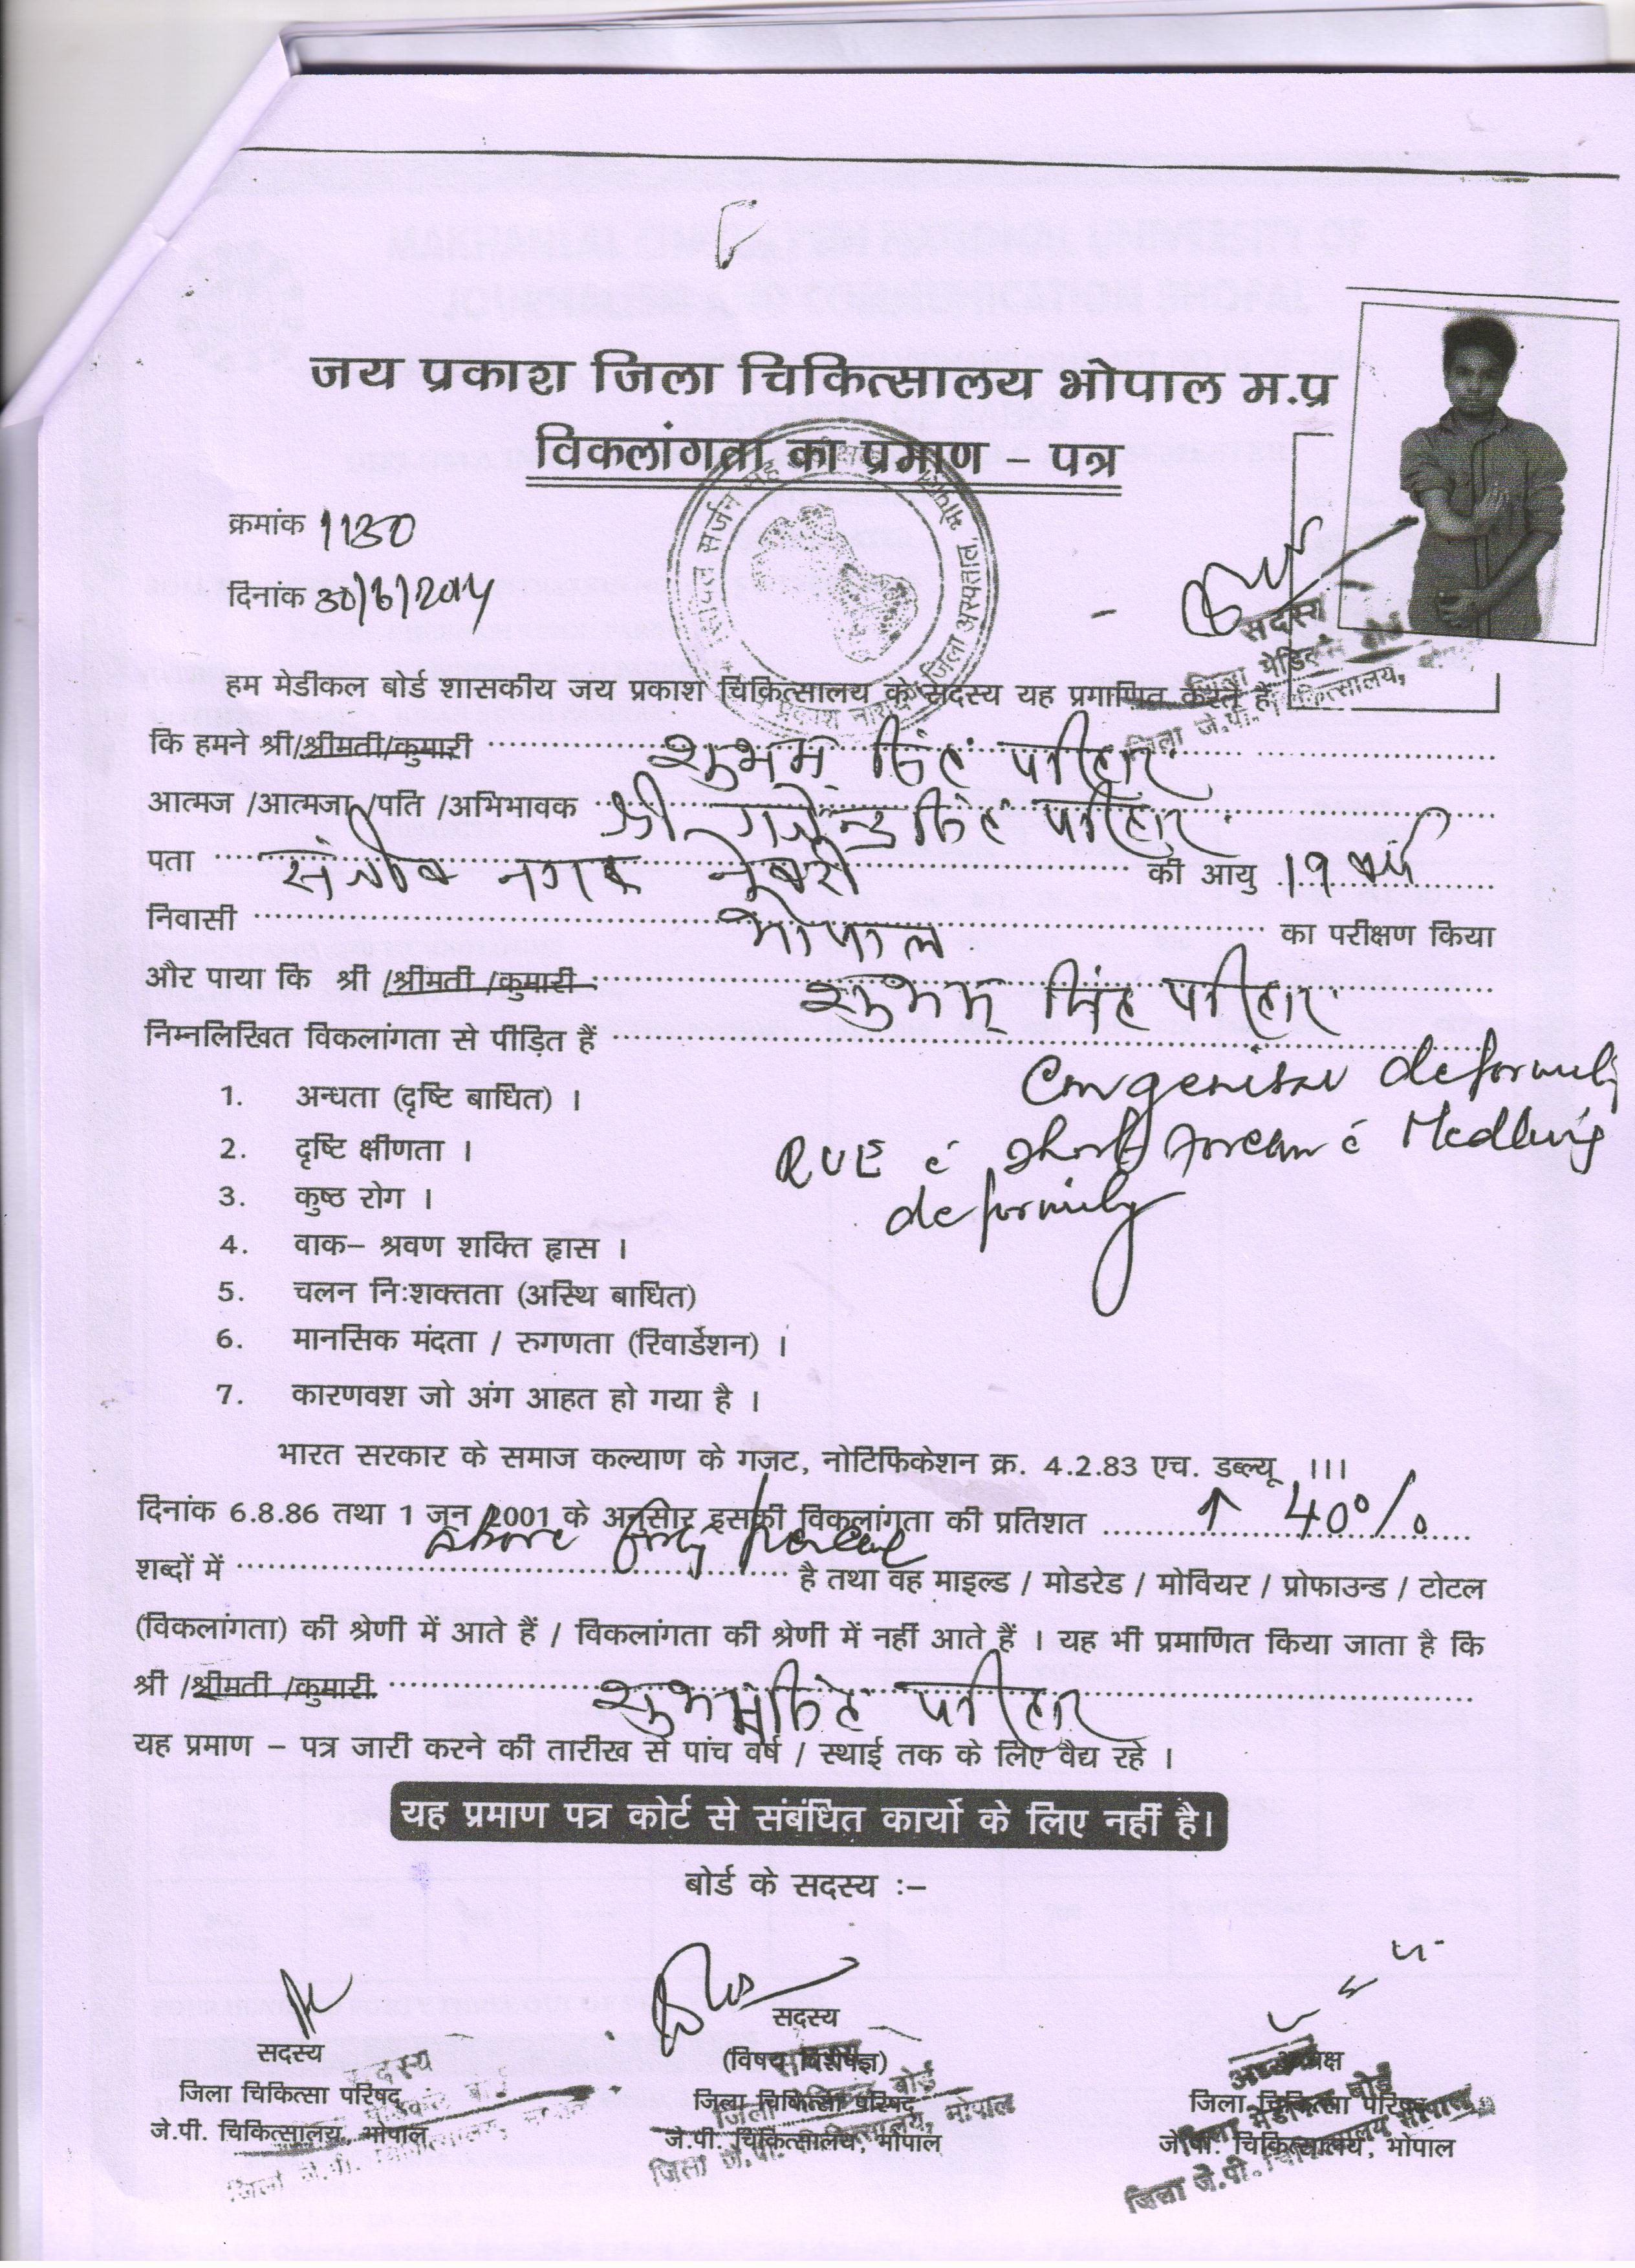 जय प्रकाश जिला चिकित्सालय भोपाल म.प्र
विकलांगता का प्रमाण – पत्र
क्रमांक 1130
दिनांक 30/6/2014
हम मेडीकल बोर्ड शासकीय जय प्रकाश चिकित्सालय के सदस्य यह प्रमाणित करते हैं
कि हमने श्री/श्रीमती/कुमारी शुभम् सिंह परिहार
आत्मज /आत्मजा /पति /अभिभावक श्री गजेन्द्र सिंह परिहार
पता संजीव नगर नेवरी की आयु 19 वर्ष
निवासी भोपाल का परीक्षण किया
और पाया कि श्री /श्रीमती /कुमारी शुभम् सिंह परिहार
निम्नलिखित विकलांगता से पीड़ित हैं
Congenital deformity
RUE c̄ short forearm c̄
deformity
1. अन्धता (दृष्टि बाधित) ।
2. दृष्टि क्षीणता ।
3. कुष्ठ रोग ।
4. वाक– श्रवण शक्ति ह्रास ।
5. चलन निःशक्तता (अस्थि बाधित)
6. मानसिक मंदता / रुगणता (रिवार्डेशन) ।
7. कारणवश जो अंग आहत हो गया है ।
भारत सरकार के समाज कल्याण के गजट, नोटिफिकेशन क्र. 4.2.83 एच. डब्ल्यू ।।।
दिनांक 6.8.86 तथा 1 जून 2001 के अनुसार इसकी विकलांगता की प्रतिशत ↑ 40%
शब्दों में above forty percent है तथा वह माइल्ड / मोडरेड / मोवियर / प्रोफाउन्ड / टोटल
(विकलांगता) की श्रेणी में आते हैं / विकलांगता की श्रेणी में नहीं आते हैं । यह भी प्रमाणित किया जाता है कि
श्री /श्रीमती /कुमारी शुभम् सिंह परिहार
यह प्रमाण – पत्र जारी करने की तारीख से पांच वर्ष / स्थाई तक के लिए वैद्य रहे ।
यह प्रमाण पत्र कोर्ट से संबंधित कार्यो के लिए नहीं है।
बोर्ड के सदस्य :–
सदस्य
जिला चिकित्सा परिषद्
जे.पी. चिकित्सालय, भोपाल
सदस्य
(विषय विशेषज्ञ)
जिला चिकित्सा परिषद्
जे.पी. चिकित्सालय, भोपाल
अध्यक्ष
जिला चिकित्सा परिषद्
जे.पी. चिकित्सालय, भोपाल